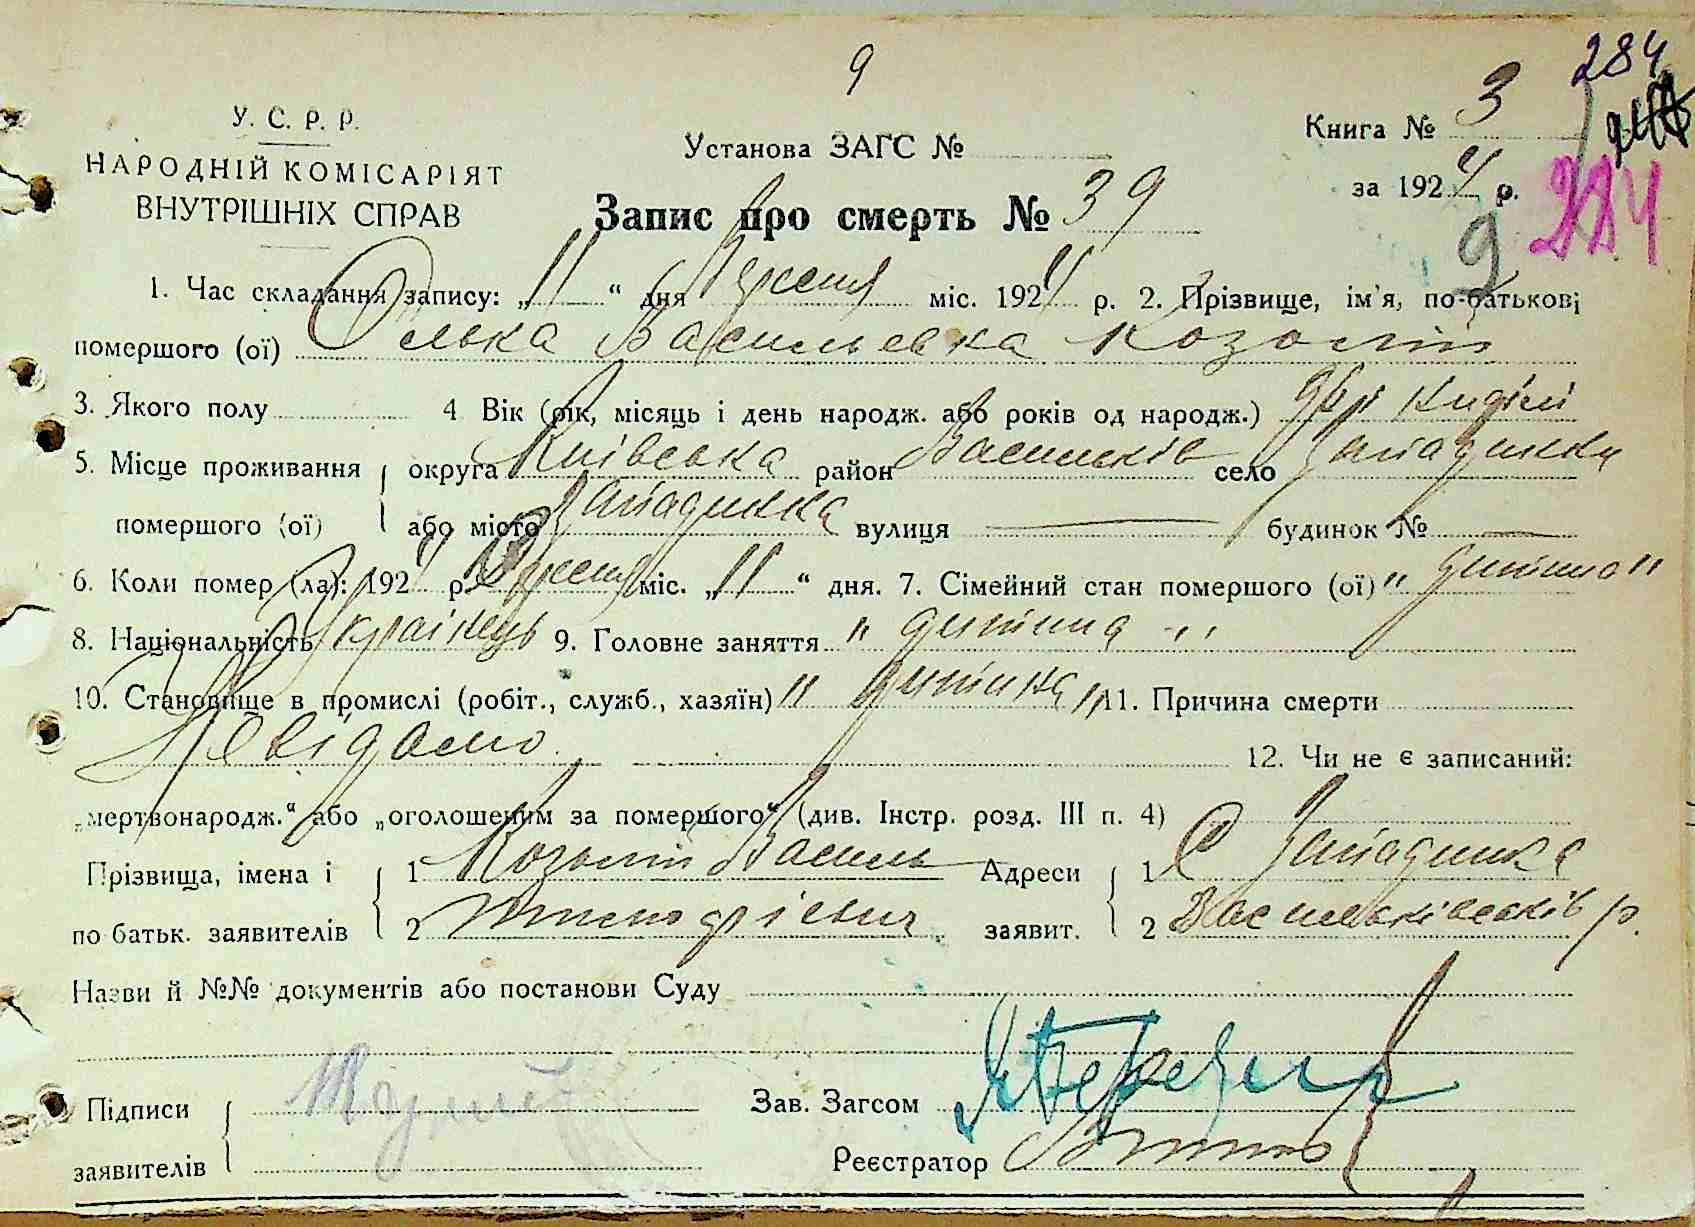 9
284
У. С. Р. Р.
НАРОДНІЙ КОМІСАРІЯТ
ВНУТРІШНІХ СПРАВ
Установа ЗАГС №
Книга № 3
за 1924 р.
224
9
Запис про смерть № 39
1. Час складання запису: „11“ дня Вресня міс. 1924 р. 2. Прізвище, ім'я, по-батькові
помершого (ої) Олька Васильевна Козолій
3. Якого полу 4 Вік (рік, місяць і день народж. або років од народж.) Дві неділі
5. Місце проживання округа Київська район Васильків село Западинка
помершого (ої) або місто Западинка вулиця — будинок № —
6. Коли помер (ла): 1924 р. Вресня міс. „11“ дня. 7. Сімейний стан помершого (ої) "дитина"
8. Національність Украінець 9. Головне заняття "дитина"
10. Становище в промислі (робіт., служб., хазяїн) "дитина" 11. Причина смерти
Невідомо 12. Чи не є записаний:
„мертвонародж.“ або „оголошеним за помершого“ (див. Інстр. розд. III п. 4)
Прізвища, імена і 1 Козолій Василь Адреси 1 С Западинка
по батьк. заявителів 2 заявит. 2 Васильківськів р.
Назви й №№ документів або постанови Суду
Підписи
Зав. Загсом
заявителів
Реєстратор